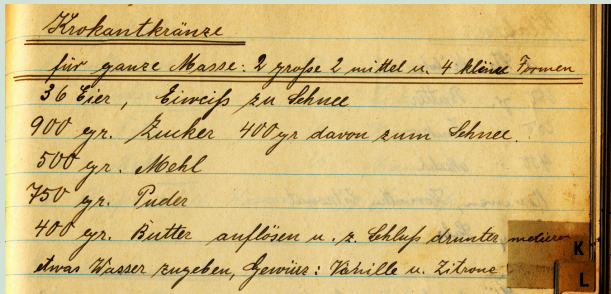 Krokantkränze
für ganze Masse: 2 große 2 mittel u. 4 kleine Formen
36 Eier, Eiweiß zu Schnee
900 gr. Zucker 400 gr davon zum Schnee.
500 gr. Mehl
750 gr. Puder
400 gr. Butter auflösen u. z. Schluß drunter melieren
etwas Wasser zugeben, Gewürz: Vanille u. Zitrone
K
L